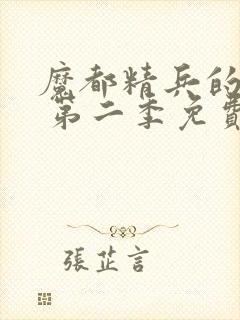 魔都精兵的
第二季免費
張芷言